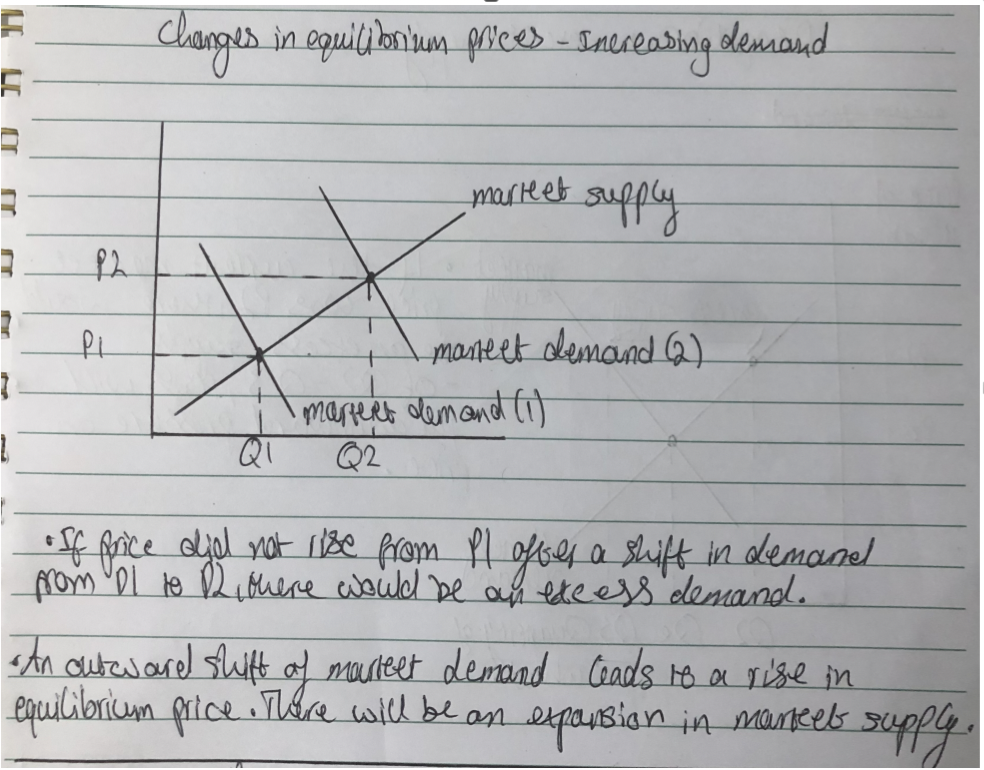 Changes in equilibrium prices - Increasing demand
market supply
P2
P1
market demand (2)
market demand (1)
Q1 Q2
• If price did not rise from P1 after a shift in demand
from D1 to D2, there would be an excess demand.
• An outward shift of market demand leads to a rise in
equilibrium price. There will be an expansion in market supply.